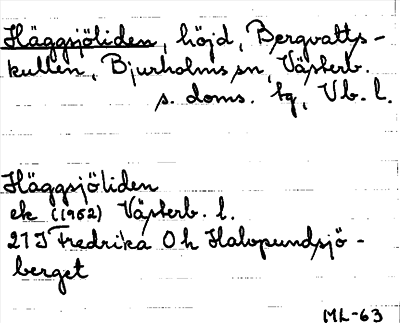 Häggsjöliden, höjd, Bergvatts-
kullen, Bjurholms sn, Västerb.
s. doms. tg, Vb. l.
Häggsjöliden
ek (1962) Västerb. l.
21 I Fredrika Oh Halvpundsjö-
berget
ML-63